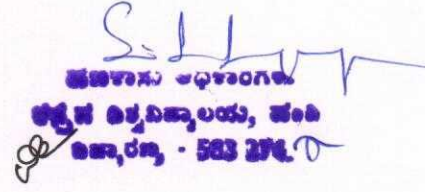 ಹಣಕಾಸು ಅಧಿಕಾರಿಗಳು
ಕನ್ನಡ ವಿಶ್ವವಿದ್ಯಾಲಯ, ಹಂಪಿ
ವಿದ್ಯಾರಣ್ಯ - 583 276.